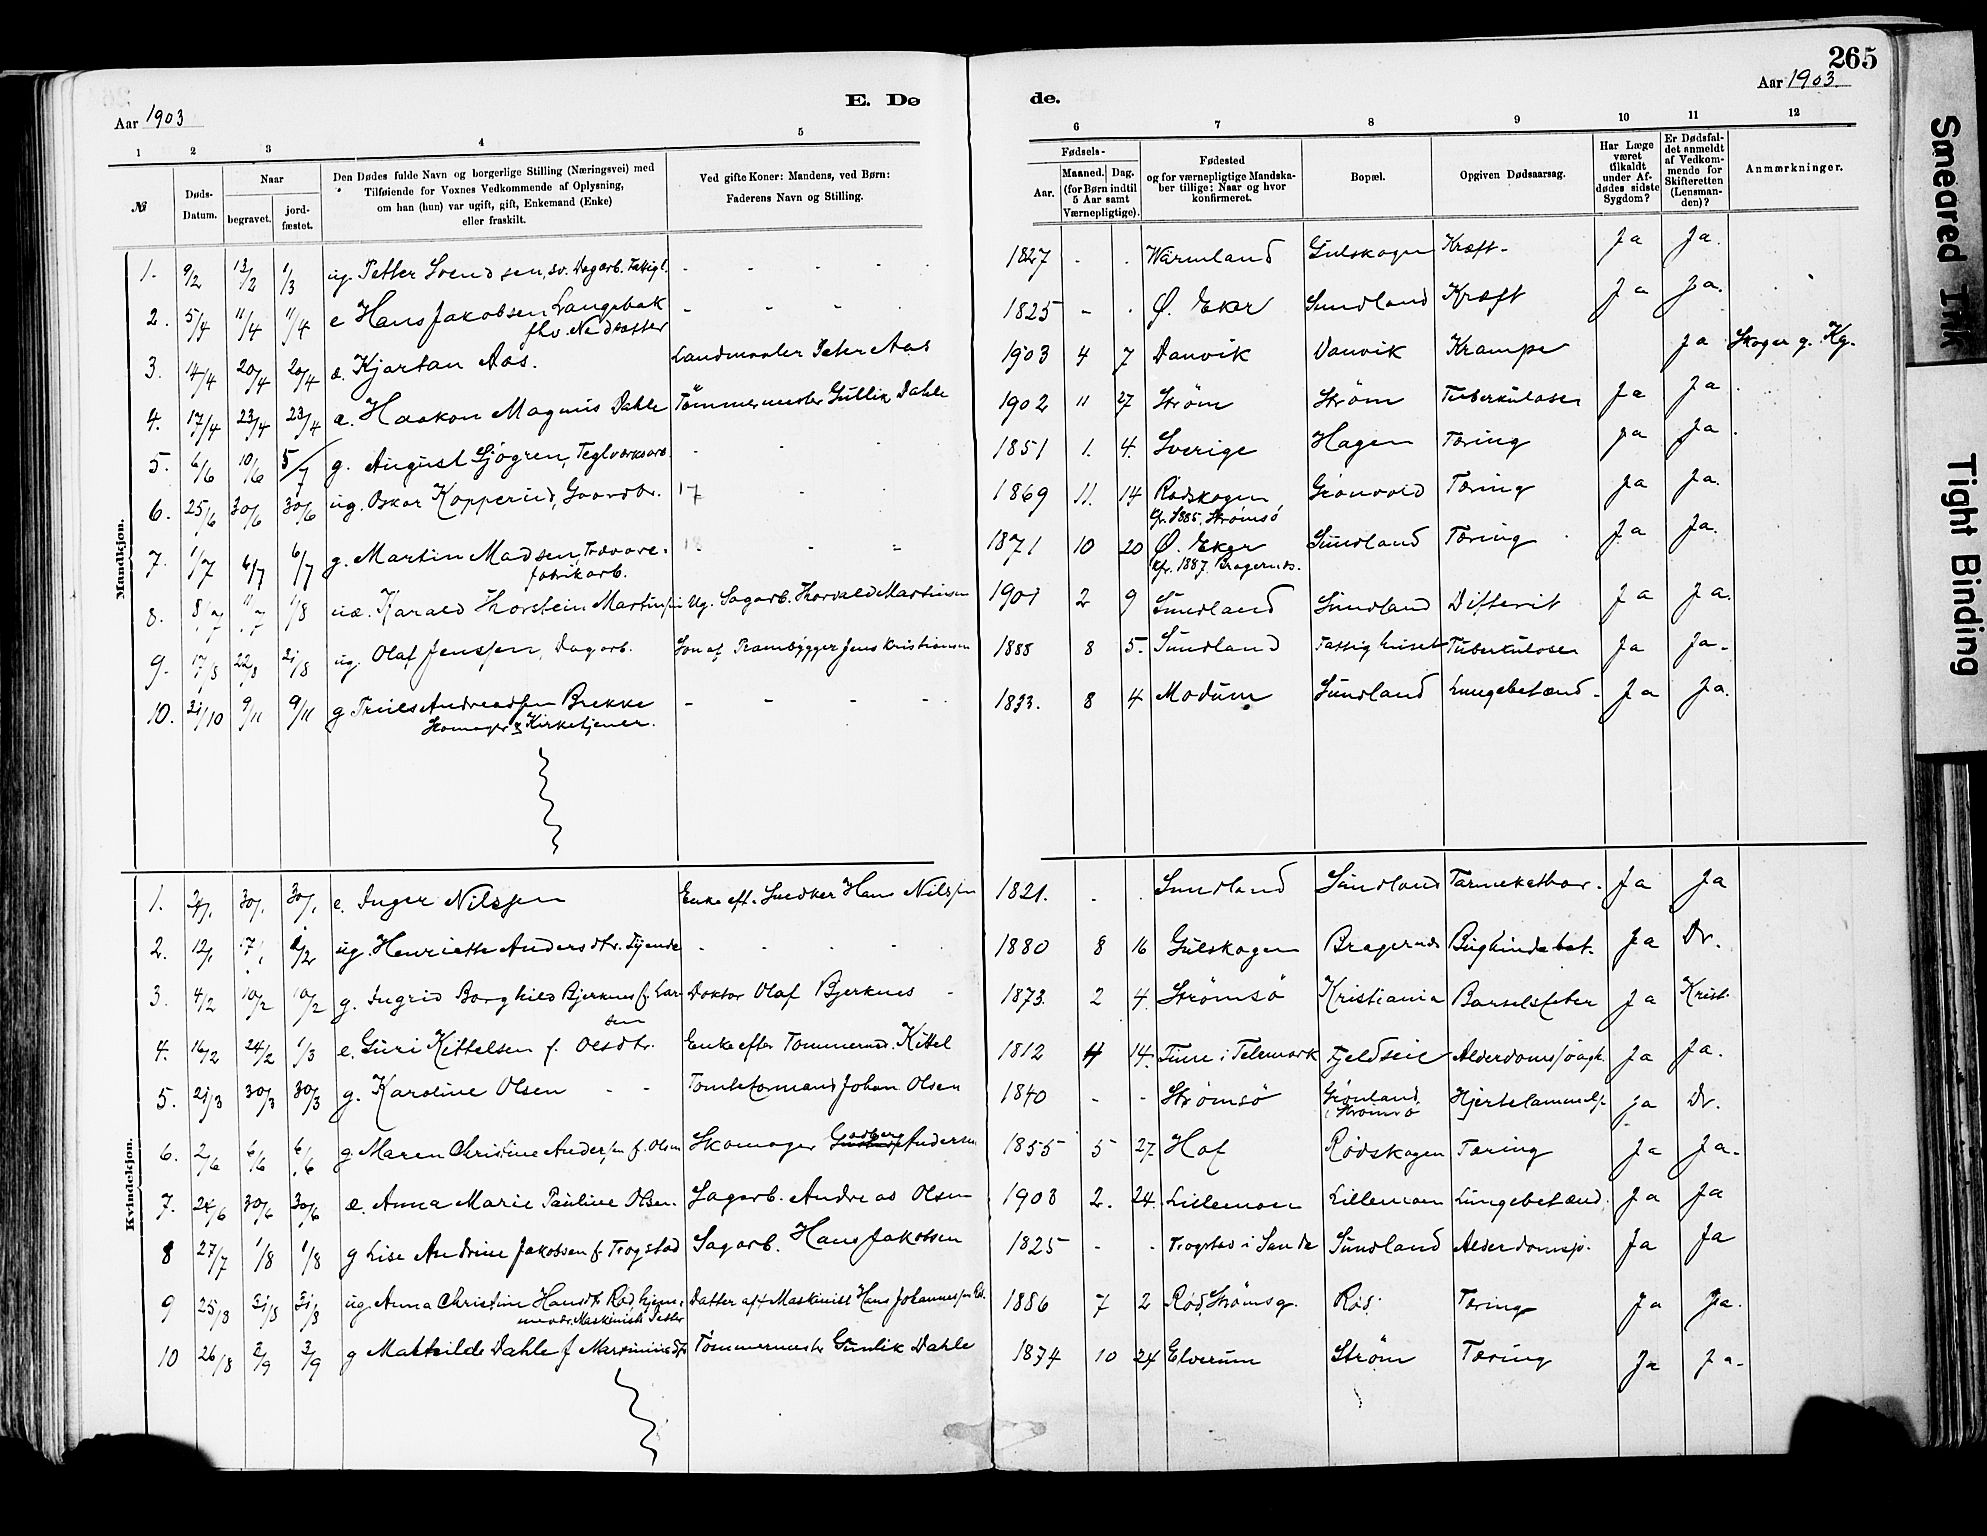 265
Aar 1903
Aar 1903.
E. Dø
de.
1 2 3 4 5
6 7 8 9 10 11 12
№
Døds-Datum.
Naar
begravet.
jord-fæstet.
Den Dødes fulde Navn og borgerlige Stilling (Næringsvei) med
Tilføiende for Voxnes Vedkommende af Oplysning,
om han (hun) var ugift, gift, Enkemand (Enke)
eller fraskilt.
Ved gifte Koner: Mandens, ved Børn:
Faderens Navn og Stilling.
Fødsels-
Aar.
Maaned. Dag.
(for Børn indtil
5 Aar samt
Værnepligtige).
Fødested
og for værnepligtige Mandska-
ber tillige: Naar og hvor
konfirmeret.
Bopæl.
Opgiven Dødsaarsag.
Har Læge
været
tilkaldt
under Af-
dødes sidste
Sygdom?
Er Dødsfal-
det anmeldt
af Vedkom-
mende for
Skifteretten
(Lensman-
den)?
Anmærkninger.
Mandkjøn.
1. 9/2 13/2 1/3 ug. Petter Svendsen, sv. Dagarb. Fattigl. - - - - 1827 - - Wärmland Gulskogen Kræft- Ja Ja.
2. 5/4 11/4 11/4 e Hans Jakobsen Langebak - - - 1825 - - Ø. Eker Sundland Kræft Ja Ja.
fhv.
3. 14/4 20/4 20/4 æ. Kjartan Aas. Landmaaler Peter Aas 1903 4 7 Danvik Danvik Krampe Ja Skoger g. Kg.
4. 17/4 23/4 23/4 æ. Haakon Magnus Dahle Tømmermester Gullik Dahle 1902 11 27 Strøm Strøm Tuberkulose Ja Ja
5. 6/6 10/6 5/7 g. August Sjøgren, Teglværksarb. - - - 1851 1. 4. Sverige Hagen Tæring Ja Ja
6. 25/6 30/6 30/6 ug. Oskar Kopperud, Gaardbr. 1869 11. 14 Rødskogen Grønvold Tæring Ja Ja.
Cfr. 1885. Strømsø
7. 1/7 6/7 6/7 g. Martin Madsen, Trævare- 1871 10 20 Ø. Eker Sundland Tæring Ja Ja.
fabrikarb. Cfr. 1887. Bragernæs.
8. 8/7 11/7 1/8 uæ. Harald Thorstein Martinsen Ug. Sagarb. Thorvald Martinsen 1901 2 9 Sundland Sundland Difterit Ja Ja.
9. 17/8 22/8 21/8 ug. Olaf Jenssen, Dagarb. Søn af Prambygger Jens Kristiansen 1888 8 5. Sundland Fattighuset Tuberkulose Ja Ja-
10. 31/10 9/11 9/11 g Truls Andreassen Brekke - - - - 1833. 8 4 Modum Sundland Lungebetænd- Ja Ja.
Skomager & Kirketjener.
Kvindekjøn.
1. 24/1 30/1 30/1 e. Inger Nilssen Enke eft. Snedker Hans Nilssen 1821. - - Sundland Sundland Tarmekathar. Ja Ja
2. 12/1 17/1 2/2 ug. Henriette Andersdtr. Tjende - - - - 1880 8 16 Gulskogen Bragernæs Bughindebet. Ja Dr.
3. 4/2 10/2 10/2 g. Ingrid Borghild Bjerknes f. Lar- Doktor Olaf Bjerknes - 1873. 2 4. Strømsø Kristiania Barselsfeber Ja Krist.
sen
4. 16/2 24/2 1/3 e. Guri Kittelsen f. Olsdtr. Enke efter Tømmermd. Kittel 1812 4 14. Tinn i Telemark Fjeldseie Alderdomssvagh. Ja Ja.
5. 21/3 30/3 30/3 g. Karoline Olsen - - Tomteformand Johan Olsen 1840 - - Strømsø Grønland Hjertelammelse Ja Dr.
i Strømsø
6. 2/6 6/6 6/6 g. Maren Christine Anderssen f. Olsen Skomager Andersen 1855 5 27 Hof Rødskogen Tæring Ja Ja.
7. 24/6 30/6 30/6 æ. Anna Marie Pauline Olsen. Sagarb. Andreas Olsen 1903 2. 24. Lillemoen Lillemoen Lungebetænd. Ja Ja
8 27/7 1/8 1/8 g Lise Andrine Jakobsen f. Trogstad Sagarb. Hans Jakobsen 1825 - - Trogstad i Sande Sundland Alderdomssv. Ja Ja
9 25/8 31/8 31/8 ug. Anna Christine Hansdtr. Rød hjem- Datter af Maskinist Hans Johannessen Rød. 1886 7 2 Rød, Strømsg. Rød. Tæring Ja Ja.
10 26/8 2/9 2/9 g Mathilde Dahle f Martiniusdtr. Tømmermester Gunlik Dahle 1874 10 24 Elverum Strøm Tæring Ja Ja-
Smeared Ink
Tight Binding